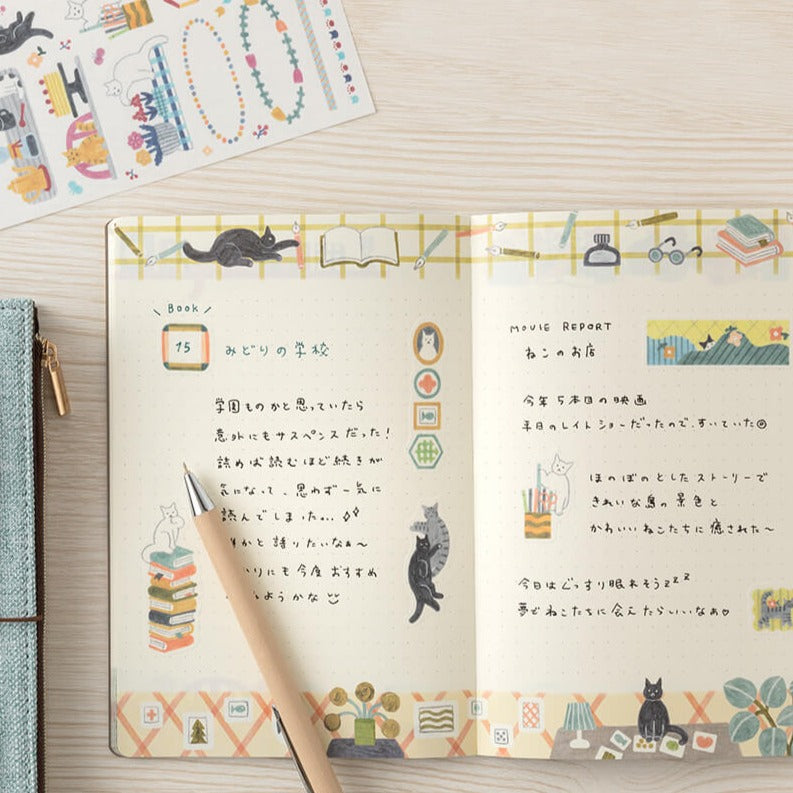 Book
15
みどりの学校
学園ものかと思っていたら
意外にもサスペンスだった!
読めば読むほど続きが
気になって、思わず一気に
読んでしまった...
かと語りたいなぁ〜
りにも今度おすすめ
ようかな
MOVIE REPORT
ねこのお店
今年5本目の映画
平日のレイトショーだったので、すいていた
ほのぼのとしたストーリーで
きれいな島の景色と
かわいいねこたちに癒された〜
今日はぐっすり眠れそうzzz
夢でねこたちに会えたらいいなぁ♡